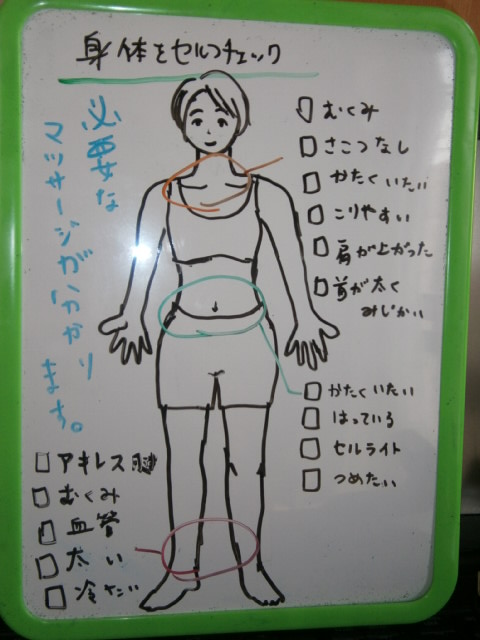 身体をセルフチェック
必要な
マッサージがわかり
ます。
むくみ
さこつなし
かたくいたい
こりやすい
肩が上がった
首が太く
みじかい
かたくいたい
はっている
セルライト
つめたい
アキレス腱
むくみ
血管
太い
冷たい